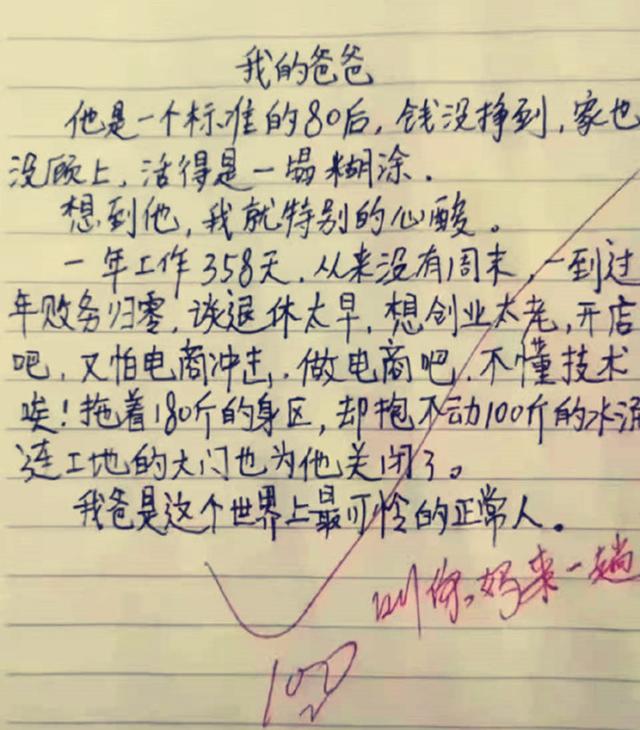 我的爸爸
他是一个标准的80后，钱没挣到，家也
没顾上，活得是一塌糊涂．
想到他，我就特别的心酸。
一年工作358天．从来没有周末，一到过
年败务归零，谈退休太早，想创业太老，开店
吧，又怕电商冲击，做电商吧，不懂技术
唉！拖着180斤的身区，却抱不动100斤的水
连工地的大门也为他关闭了。
我爸是这个世界上最可怜的正常人。
叫你妈来一趟
100